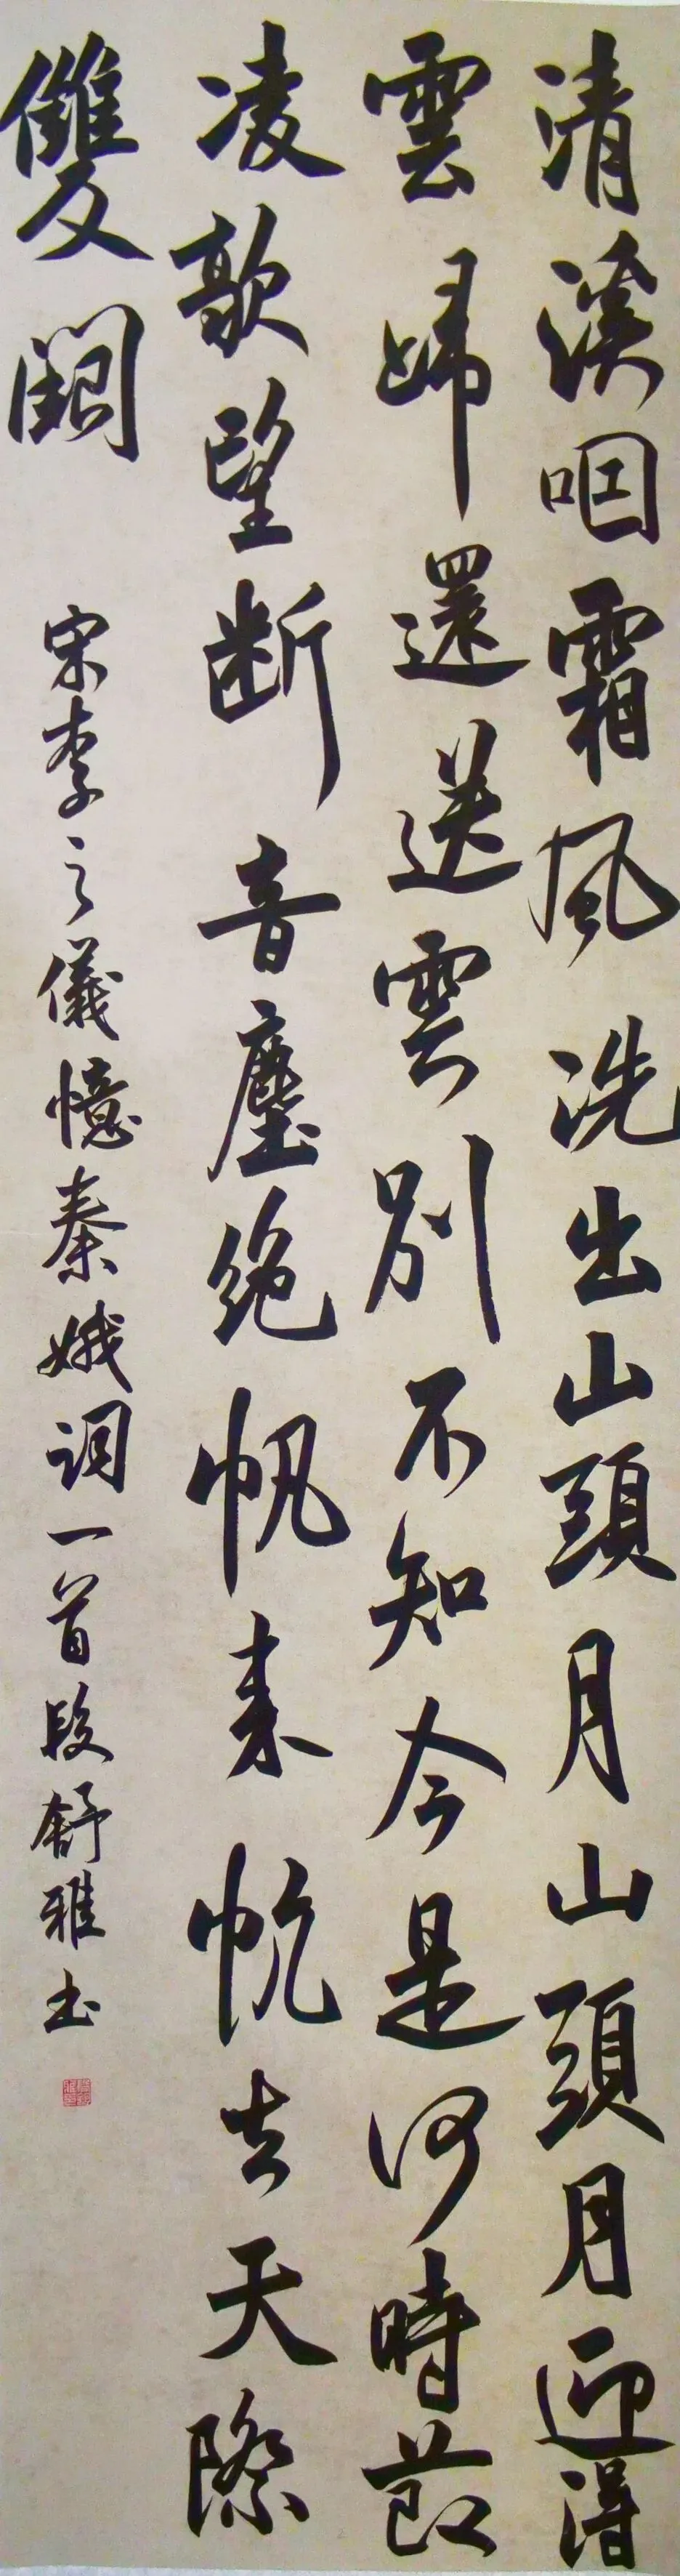 清溪咽霜風洗出山頭月山頭月迎得
雲歸還送雲別不知今是何時節
凌歊望断音塵絶帆来帆去天際
雙闕
宋李之儀憶秦娥詞一首段舒雅书